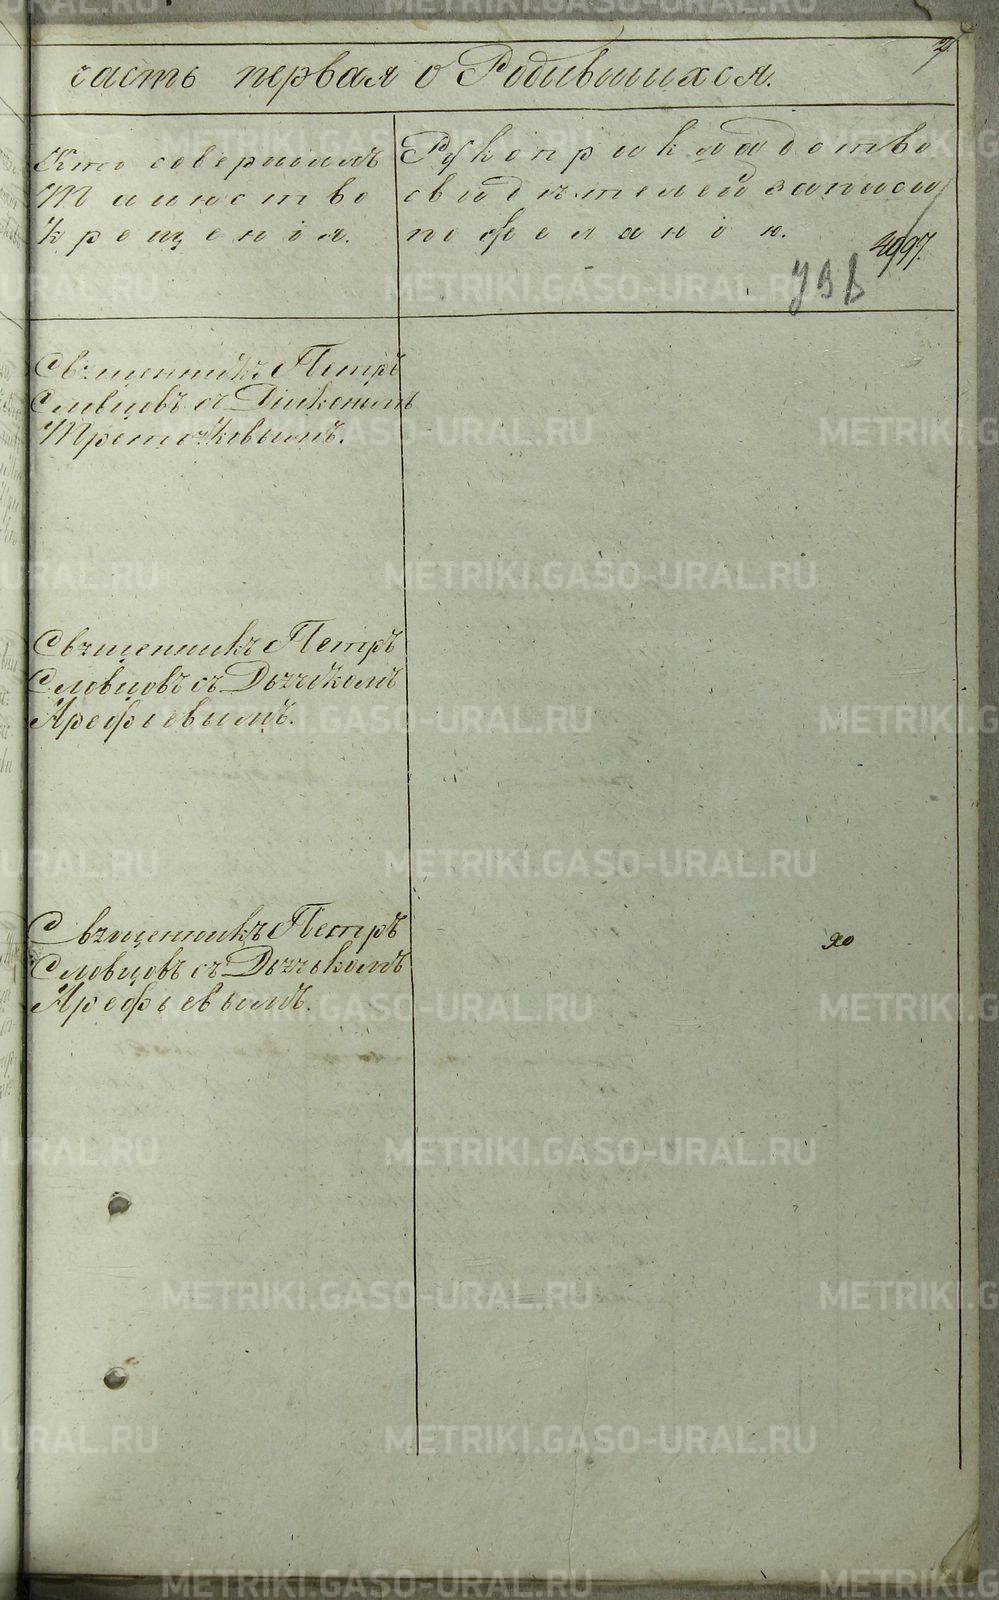 часть первая о Родившихся.
Кто совершалъ
Таинство
Крещенія.
Рукоприкладство
свидѣтелей записи
по желанію.
Священникъ Петръ
Словцовъ съ Діакономъ
Третьяковымъ.
Священникъ Петръ
Словцовъ съ Дьячкомъ
Арефьевымъ.
Священникъ Петръ
Словцовъ съ Дьячькомъ
Арефьевымъ.
METRIKI.GASO-URAL.RU